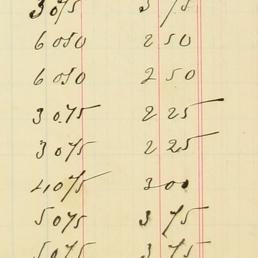 3075 3 75
6050 2 50
6050 2 50
3075 2 25
3075 2 25
4075 300
5075 3 75
5075 3 75